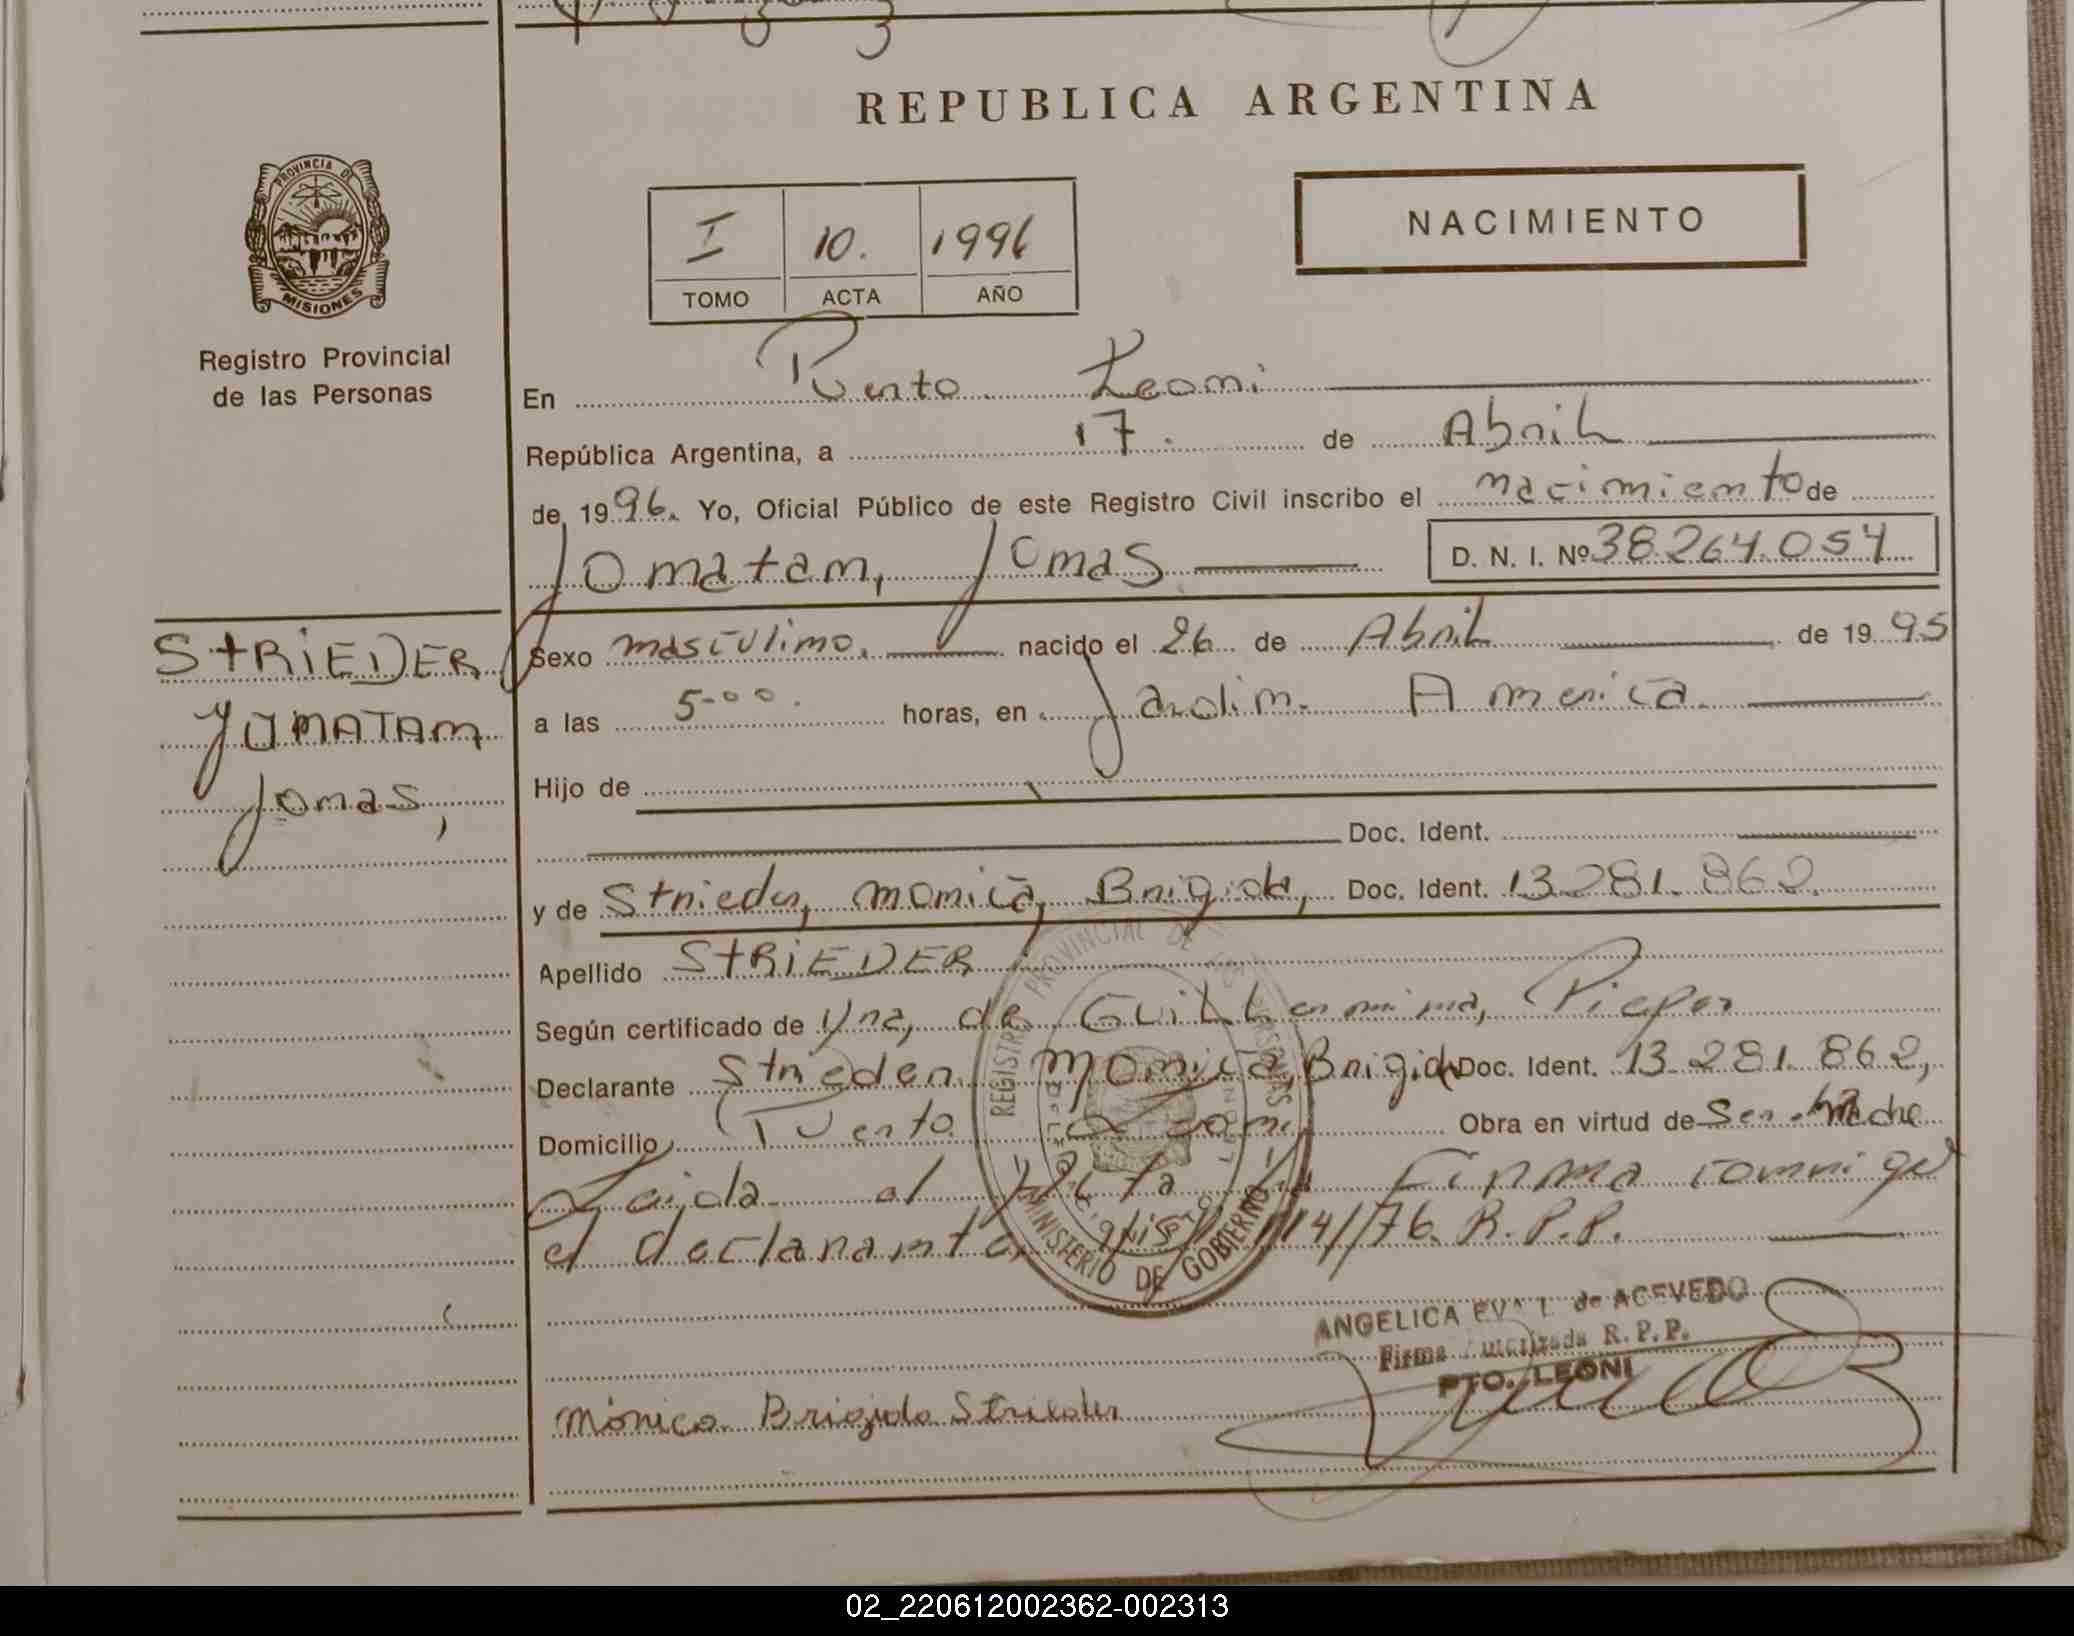 REPUBLICA ARGENTINA
PROVINCIA DE
MISIONES
Registro Provincial
de las Personas
NACIMIENTO
I 10. 1996
TOMO ACTA AÑO
En Puerto Leoni
República Argentina, a 17. de Abril
de 1996. Yo, Oficial Público de este Registro Civil inscribo el nacimiento de
Jomatam, Jomas D. N. I. Nº 38.264.054
STRIEDER
JOMATAM
Jomas,
Sexo masculino. nacido el 26 de Abril de 1995
a las 5-00. horas, en Jardim America
Hijo de
Doc. Ident.
y de Strieder, Monica, Brigida, Doc. Ident. 13.281.862.
Apellido STRIEDER
Según certificado de Yna, de Guillermina, Pieper
Declarante Strieder Monica, Brigida Doc. Ident. 13.281.862,
Domicilio Puerto Leoni Obra en virtud de Ser madre
Leida al Acta La Firma comnigo
el declarante, 114/76. R.P.P.
REGISTRO PROVINCIAL DE LAS PERSONAS
MINISTERIO DE GOBIERNO
ANGELICA de ACEVEDO
Firma Autorizada R.P.P.
PTO. LEONI
Mónica Brigida Strieder
02_220612002362-002313